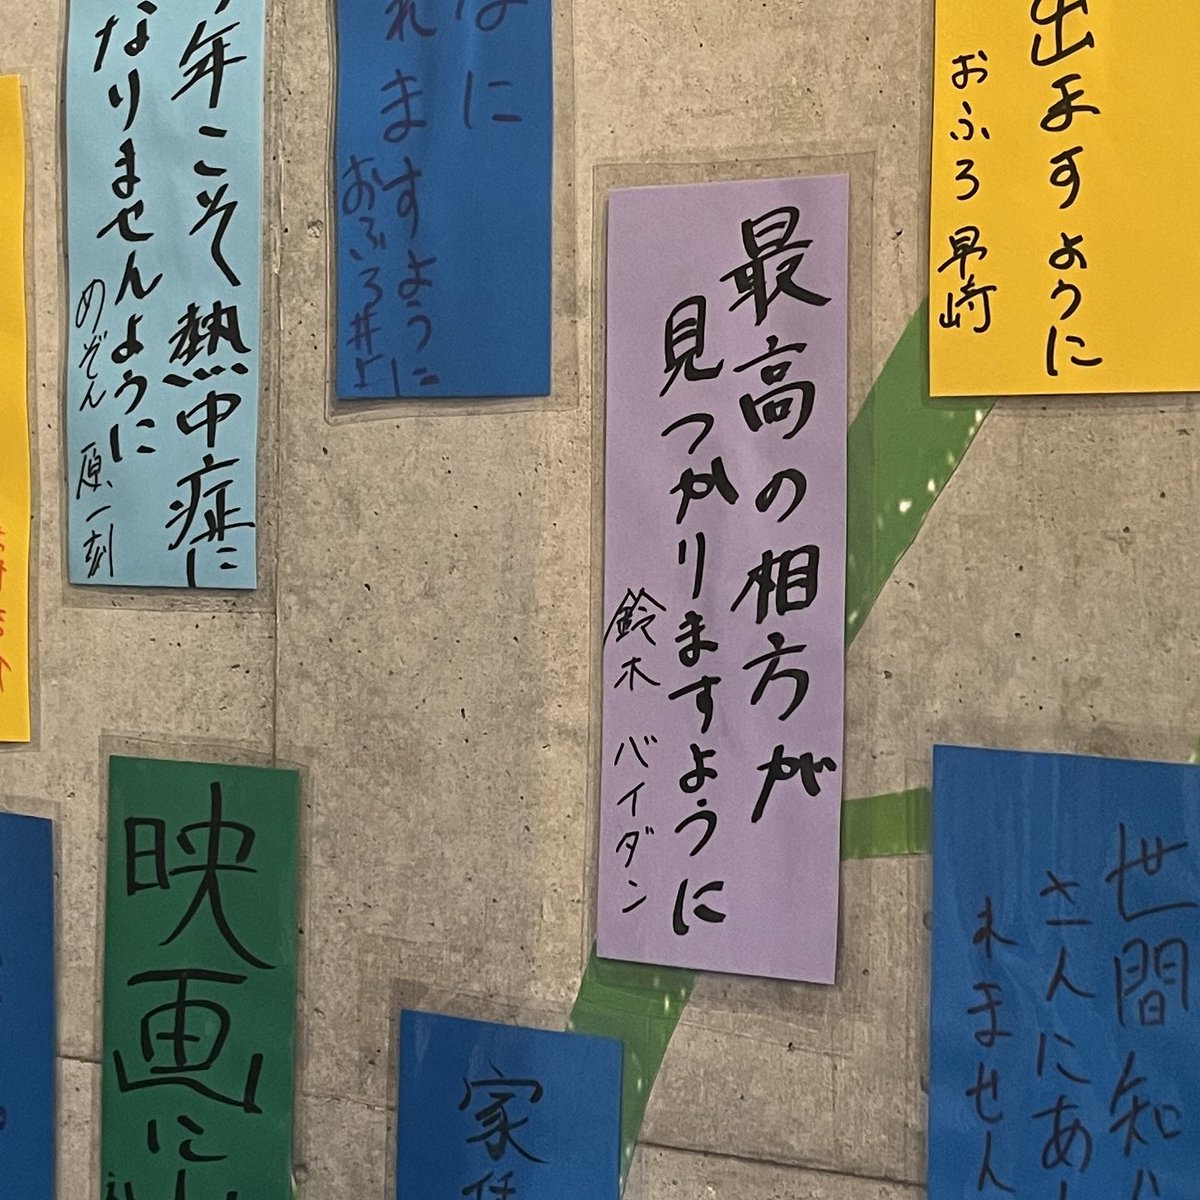 出ますように
おふろ 早崎
最高の相方が
見つかりますように
鈴木 バイダン
なに
れますように
おふろ井上
年こそ熱中症に
なりませんように
めぞん 原一刻
世間知
さんにあ
れません
家
映画に